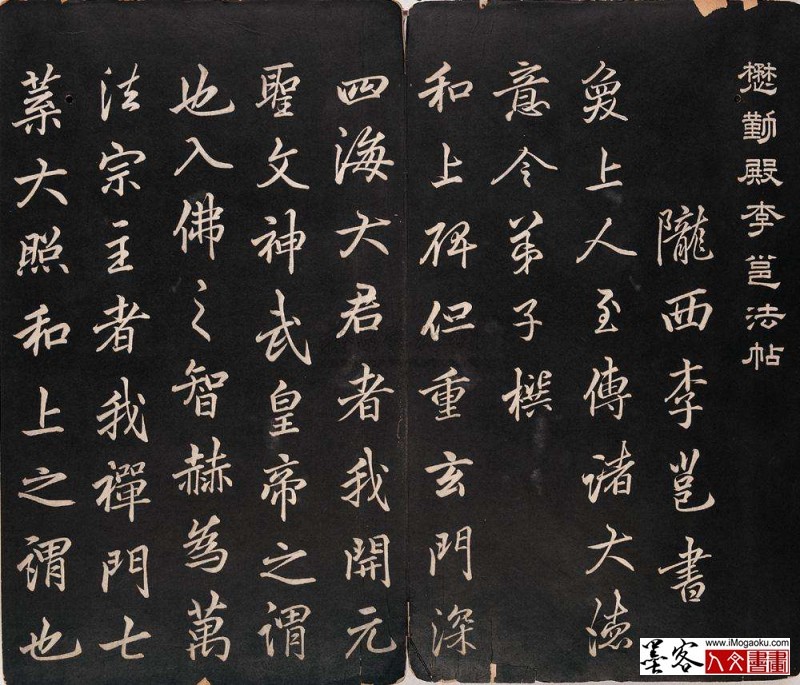 懋勤殿李邕法帖
隴西李邕書
奐上人至傳諸大德
意令弟子撰
和上碑但重玄門深
四海大君者我開元
聖文神武皇帝之謂
也入佛之智赫為萬
法宗主者我禪門七
葉大照和上之謂也
墨客
www.iMogaoku.com
人文書畫